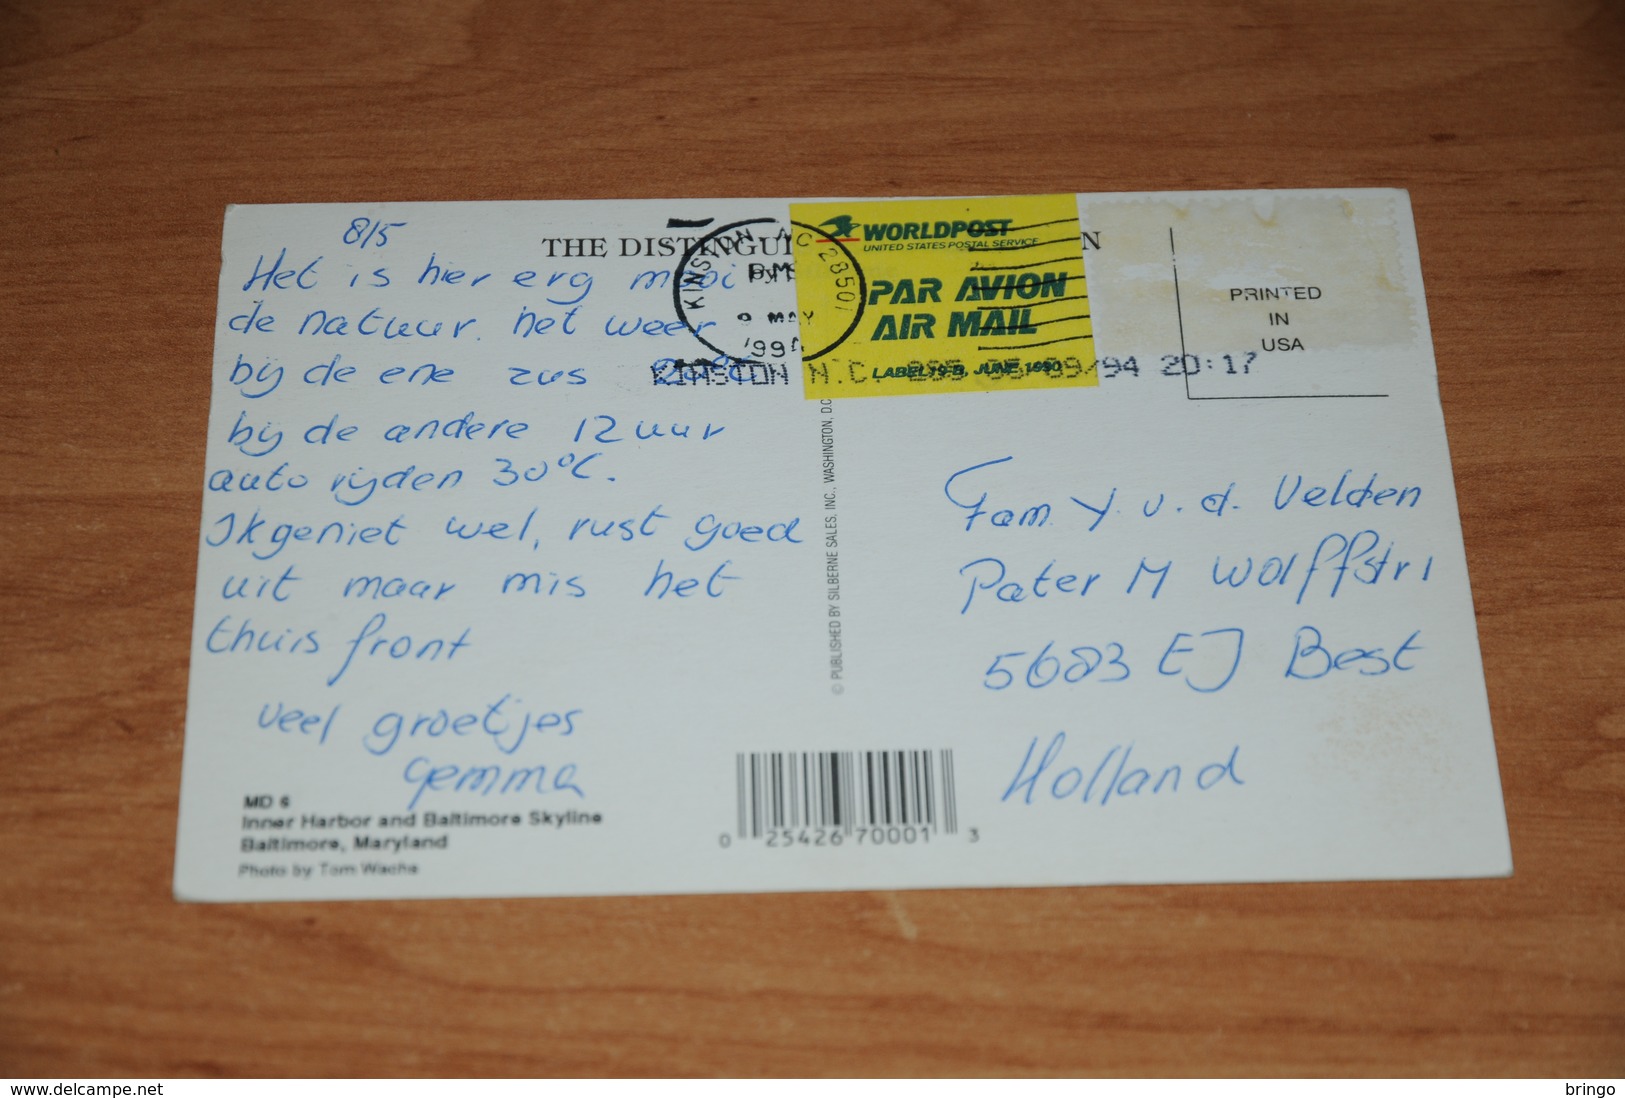 8/5
THE DISTINGUI N
Het is hier erg mooi
de natuur. het weer
bij de ene zus
bij de andere 12 uur
auto rijden 30°C.
Ik geniet wel, rust goed
uit maar mis het
thuis front
veel groetjes
Gemma
MD 6
Inner Harbor and Baltimore Skyline
Baltimore, Maryland
Photo by Tom Wachs
KINSTON NC 28501
PM
9 MAY
1994
WORLDPOST
UNITED STATES POSTAL SERVICE
PAR AVION
AIR MAIL
LABEL 19-B, JUNE 1990
KINSTON N.C. 09/94 20:17
PRINTED
IN
USA
© PUBLISHED BY SILBERNE SALES, INC., WASHINGTON, D.C.
Fam Y. v. d. Velden
Pater M Wolffstr 1
5683 EJ Best
Holland
0 25426 70001 3
www.delcampe.net
bringo